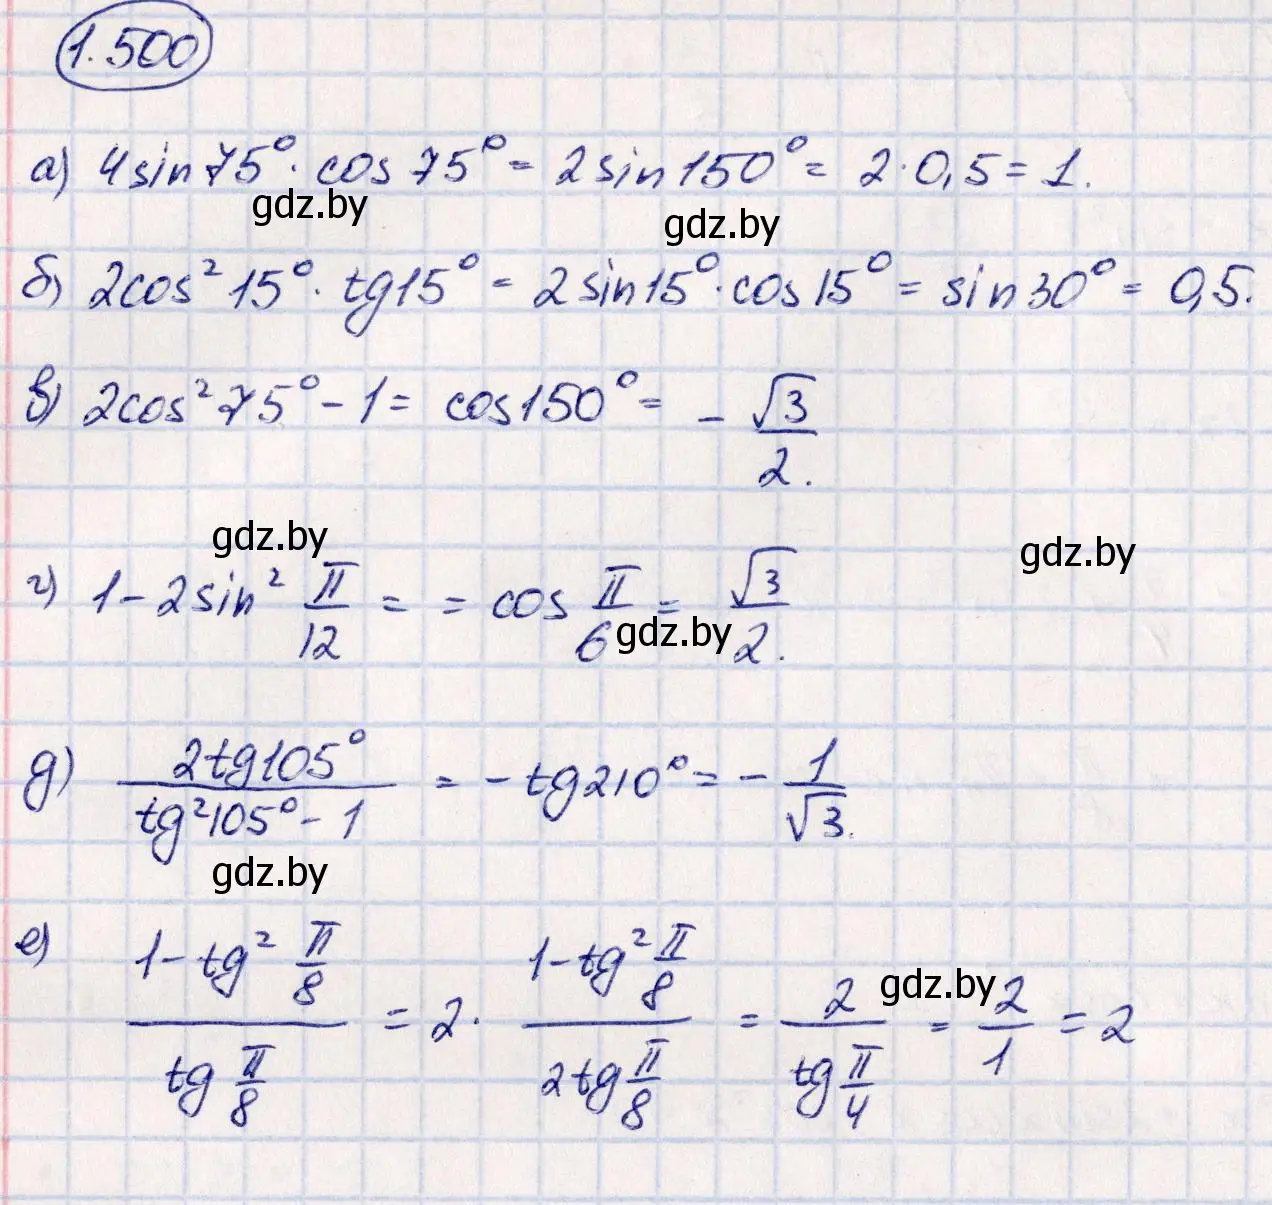 1.500
а) 4sin75°·cos75° = 2sin150° = 2·0,5 = 1.
gdz.by gdz.by
б) 2cos²15°·tg15° = 2sin15°·cos15° = sin30° = 0,5.
в) 2cos²75° - 1 = cos150° = -√3/2.
gdz.by gdz.by
г) 1 - 2sin² π/12 = = cos π/6 = √3/2.
gdz.by
д) 2tg105°/(tg²105° - 1) = -tg210° = -1/√3.
gdz.by
е) (1 - tg² π/8)/(tg π/8) = 2·(1 - tg² π/8)/(2tg π/8) = 2/(tg π/4) = 2/1 = 2
gdz.by